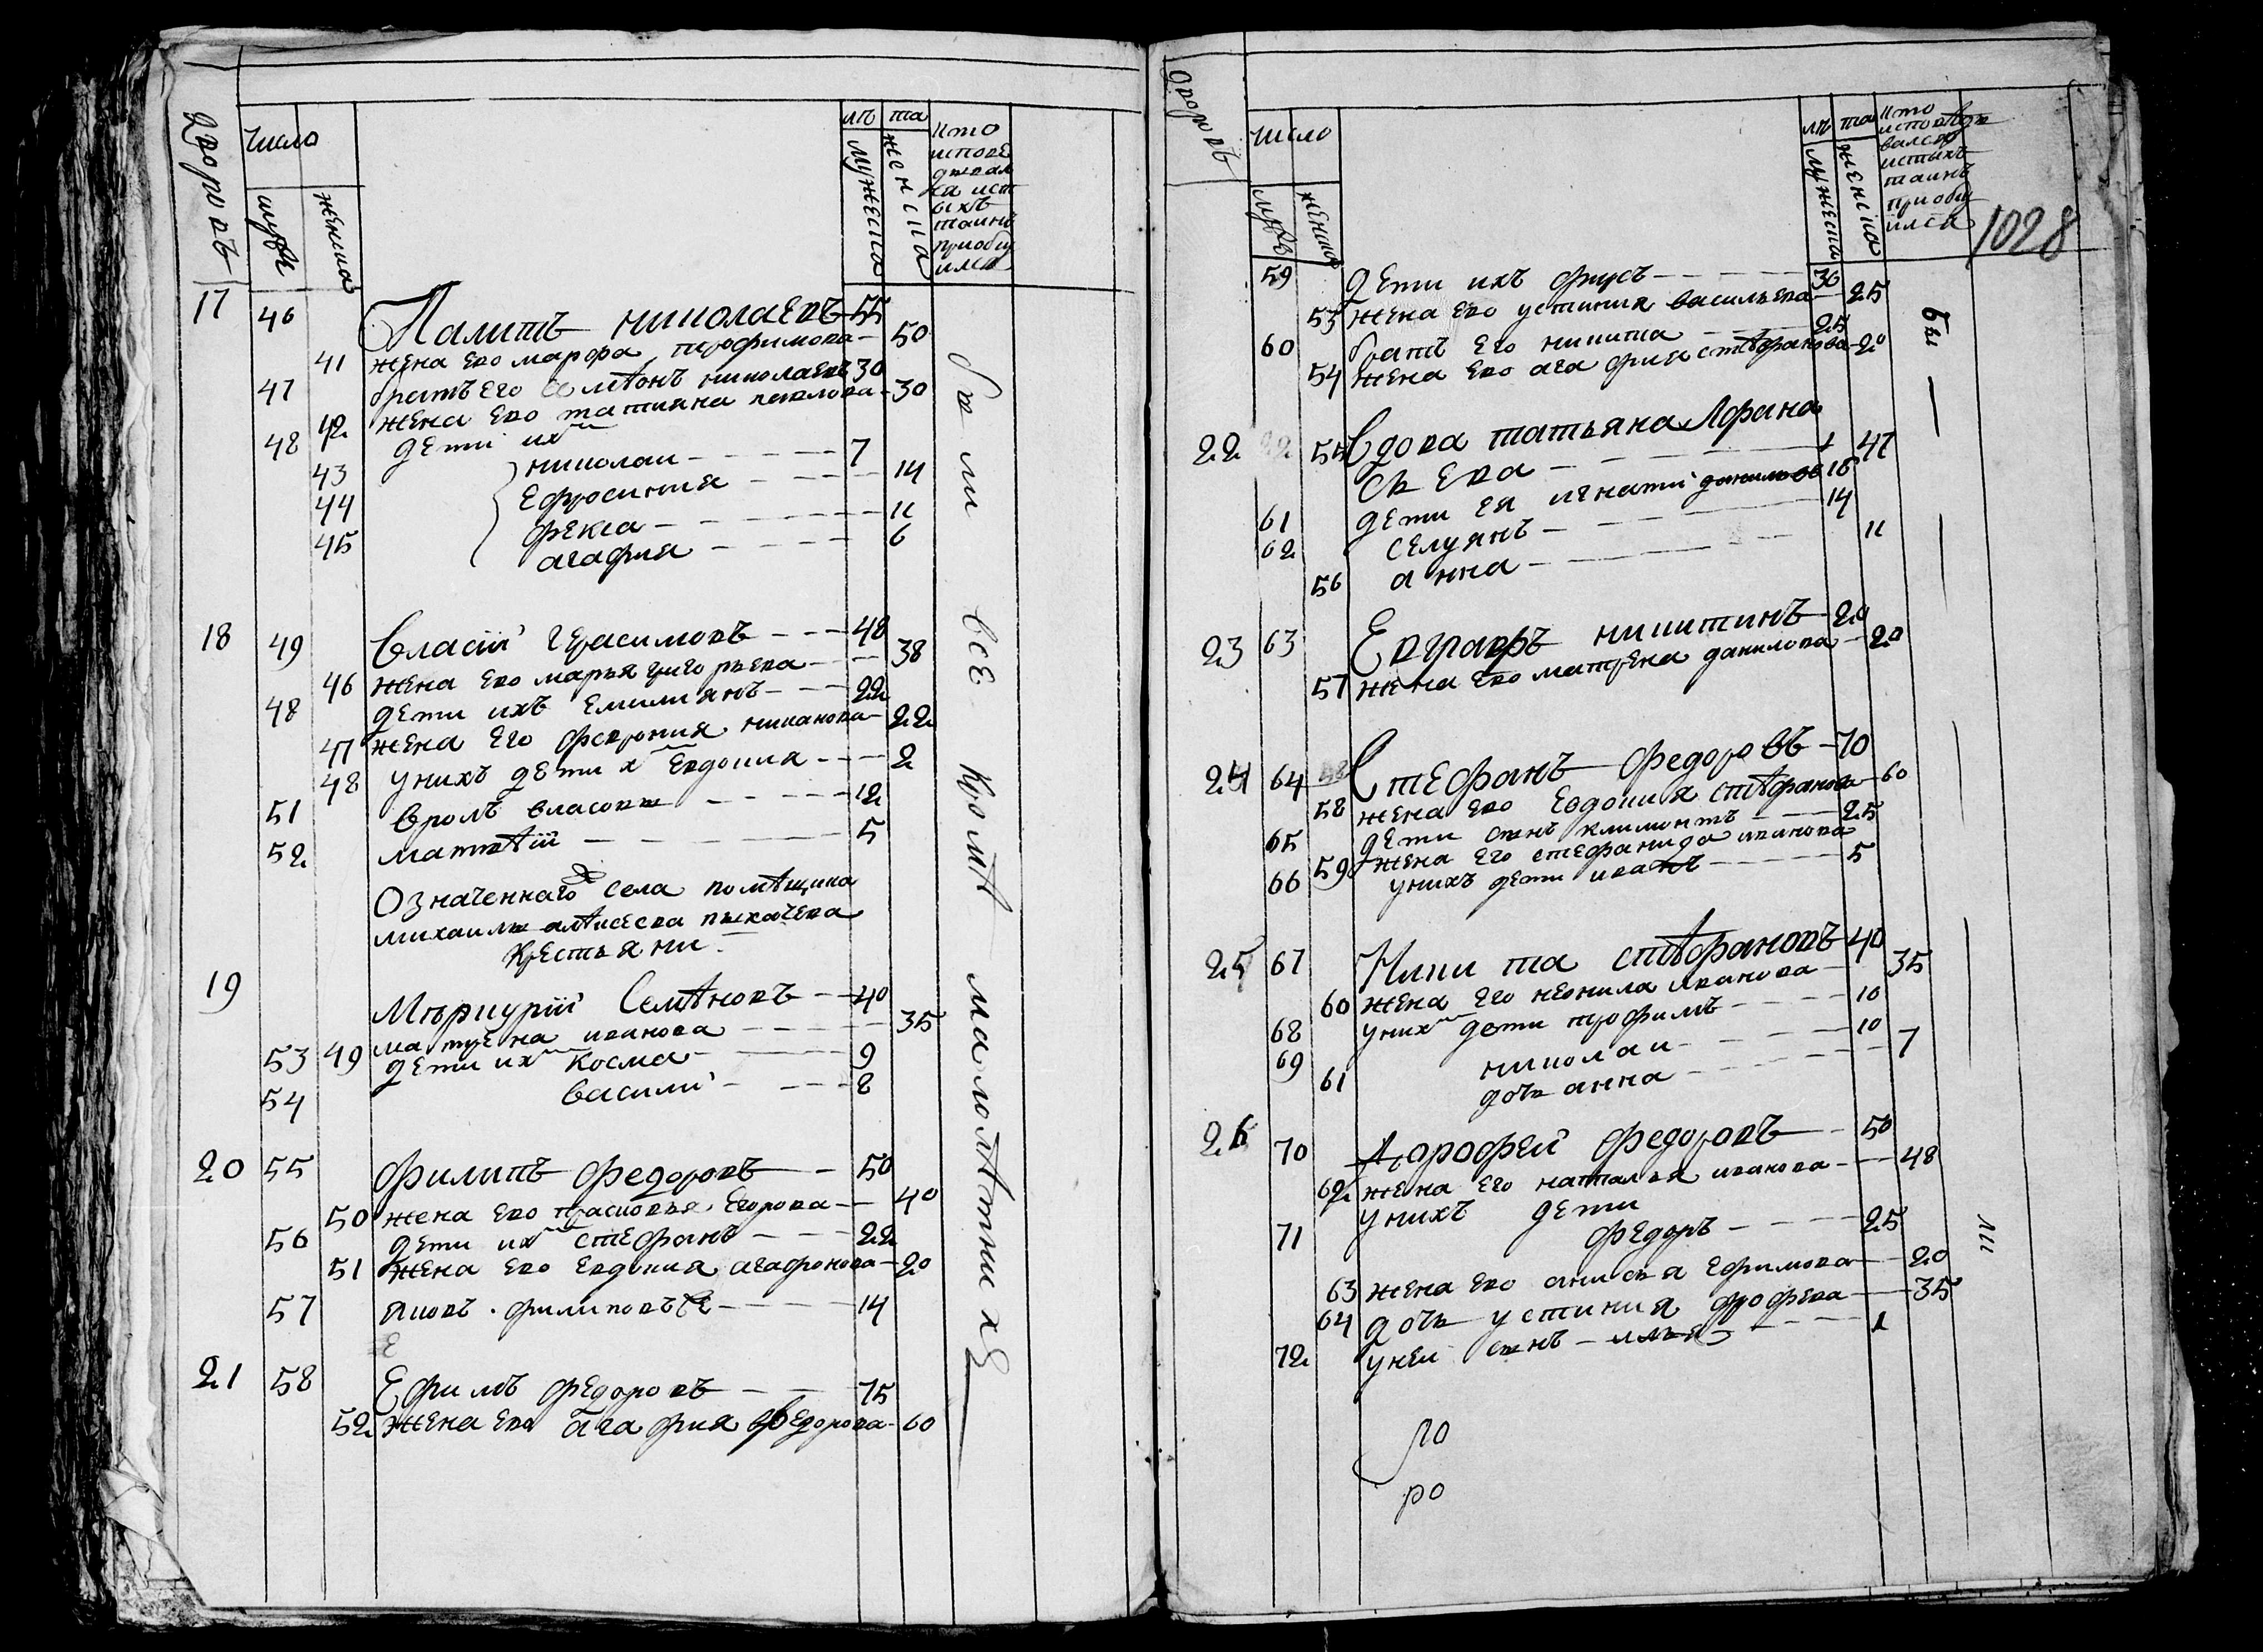 дворовъ
число
мужеска
женска
лѣ та
мужеска
женска
кто исповедывался и стыхъ таинъ приобщился
17 46 Палитъ николаевъ 55
41 жена ево марфа трофимова 50
47 братъ его семѣонъ николаевъ 30
42 жена ево татияна павлова 30
48 дети ихъ
николаи 7
43 Ефросиния 14
44 фекла 11
45 агафия 6
18 49 Власiй герасимовъ 48
46 жена ево марья григорьева 38
48 дети ихъ Емилиянъ 22
47 жена его феврония
48 унихъ дети Евдокия 2
51 Фролъ власовъ 12
52 матвѣiй 5
Означеннаго села помѣщика
михаилы алѣксеева
крестьяни
19 Мѣркурiй Семѣновъ 40
49 матрена иванова 35
53 дети ихъ косма 9
54 василиi 8
20 55 Филипъ Федоровъ 50
50 жена ево прасковья Егорова 40
56 дети ихъ стефанъ 22
51 жена ево Евдокия агафонова 20
57 яковъ филиповъ 14
21 58 Ефимъ федоровъ 75
52 жена ево агафия федорова 60
были все кроме малолѣтних
дворовъ
число
мужеска
женска
лѣ та
мужеска
женска
кто исповедывался истыхъ таинъ приобщился
1028
59 дети ихъ фирсъ 36
53 жена ево устиния васильева 25
60 братъ его никита 25
54 жена ево агафия стѣфанова 20
22 55 Вдова татьяна Афана
сьева 47
61 дети ея игнатиi данилов 16
62 селуянъ 14
56 анна 11
23 63 Евграфъ никитинъ 20
57 жена ево матрена данилова 20
24 64 Стефанъ Федоровъ 70
58 жена ево Евдокия стѣфанова 60
65 дети сынъ климонтъ 25
59 жена его стефанида иванова
66 унихъ дети иванъ 5
25 67 Никита стѣфановъ 40
60 жена его неонила иванова 35
68 унихъ дети трофимъ 10
69 николаи 10
61 дочь анна 7
26 70 Дорофеи Федоровъ 50
62 жена его наталья иванова 48
унихъ дети
71 федоръ 25
63 жена ево анисья Ефимова 20
64 дочь устиния дрофева 35
72 унеи сынъ илья 1
бы
ли
ро
ро